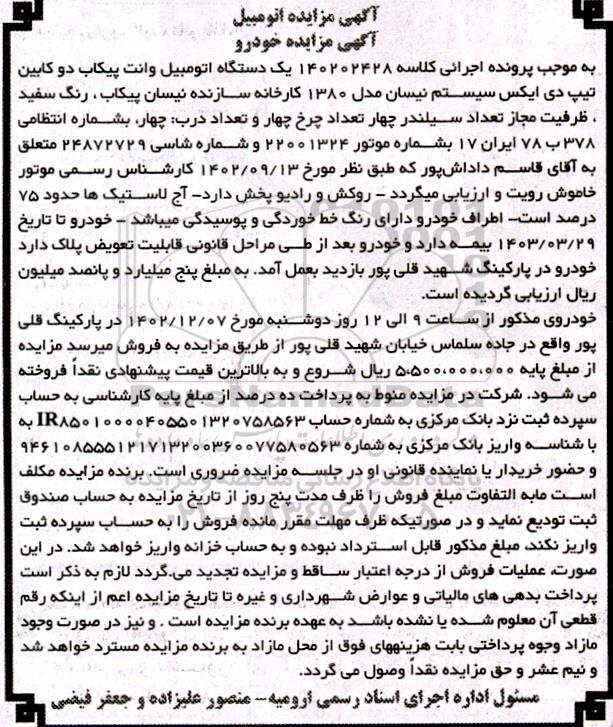 آگهی مزایده اتومبیل
آگهی مزایده خودرو
به موجب پرونده اجرائی کلاسه ۱۴۰۲۰۲۴۲۸ یک دستگاه اتومبیل وانت پیکاب دو کابین
تیپ دی ایکس سیستم نیسان مدل ۱۳۸۰ کارخانه سازنده نیسان پیکاب ، رنگ سفید
، ظرفیت مجاز تعداد سیلندر چهار تعداد چرخ چهار و تعداد درب: چهار، بشماره انتظامی
۳۷۸ ب ۷۸ ایران ۱۷ بشماره موتور ۲۲۰۰۱۳۲۴ و شماره شاسی ۲۴۸۷۲۷۲۹ متعلق
به آقای قاسم داداش‌پور که طبق نظر مورخ ۱۴۰۲/۰۹/۱۳ کارشناس رسمی موتور
خاموش رویت و ارزیابی میگردد - روکش و رادیو پخش دارد- آج لاستیک ها حدود ۷۵
درصد است- اطراف خودرو دارای رنگ خط خوردگی و پوسیدگی میباشد - خودرو تا تاریخ
۱۴۰۳/۰۳/۲۹ بیمه دارد و خودرو بعد از طی مراحل قانونی قابلیت تعویض پلاک دارد
خودرو در پارکینگ شهید قلی پور بازدید بعمل آمد. به مبلغ پنج میلیارد و پانصد میلیون
ریال ارزیابی گردیده است.
خودروی مذکور از ساعت ۹ الی ۱۲ روز دوشنبه مورخ ۱۴۰۲/۱۲/۰۷ در پارکینگ قلی
پور واقع در جاده سلماس خیابان شهید قلی پور از طریق مزایده به فروش میرسد مزایده
از مبلغ پایه ۵،۵۰۰،۰۰۰،۰۰۰ ریال شروع و به بالاترین قیمت پیشنهادی نقداً فروخته
می شود. شرکت در مزایده منوط به پرداخت ده درصد از مبلغ پایه کارشناسی به حساب
سپرده ثبت نزد بانک مرکزی به شماره حساب IR۸۵۰۱۰۰۰۰۴۰۵۵۰۱۳۲۰۷۵۸۵۶۳ به
با شناسه واریز بانک مرکزی به شماره ۹۴۶۱۰۸۵۵۵۱۲۱۷۱۳۲۰۰۳۶۰۰۷۷۵۸۰۵۶۳
و حضور خریدار یا نماینده قانونی او در جلسه مزایده ضروری است. برنده مزایده مکلف
است مابه التفاوت مبلغ فروش را ظرف مدت پنج روز از تاریخ مزایده به حساب صندوق
ثبت تودیع نماید و در صورتیکه ظرف مهلت مقرر مانده فروش را به حساب سپرده ثبت
واریز نکند، مبلغ مذکور قابل استرداد نبوده و به حساب خزانه واریز خواهد شد. در این
صورت، عملیات فروش از درجه اعتبار ساقط و مزایده تجدید می.گردد لازم به ذکر است
پرداخت بدهی های مالیاتی و عوارض شهرداری و غیره تا تاریخ مزایده اعم از اینکه رقم
قطعی آن معلوم شده یا نشده باشد به عهده برنده مزایده است . و نیز در صورت وجود
مازاد وجوه پرداختی بابت هزینههای فوق از محل مازاد به برنده مزایده مسترد خواهد شد
و نیم عشر و حق مزایده نقداً وصول می گردد.
مسئول اداره اجرای اسناد رسمی ارومیه- منصور علیزاده و جعفر فیضی